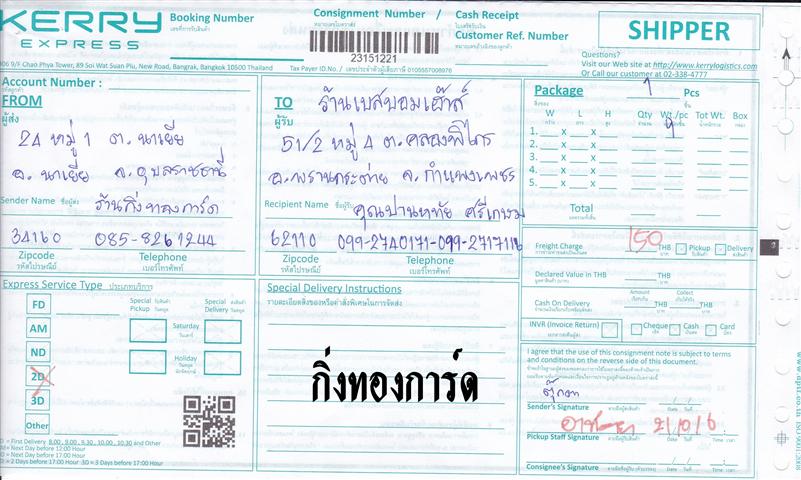 KERRY EXPRESS
Booking Number
เลขที่การรับสินค้า
Consignment Number /
หมายเลขใบตราส่ง
23151221
Tax Payer ID.No. / เลขประจำตัวผู้เสียภาษี 0105557008976
Cash Receipt
ใบเสร็จรับเงิน
Customer Ref. Number
หมายเลขอ้างอิงของลูกค้า
SHIPPER
906 9/F Chao Phya Tower, 89 Soi Wat Suan Plu, New Road, Bangrak, Bangkok 10500 Thailand
Questions?
Visit our Web site at http://www.kerrylogistics.com
Or Call our customer at 02-338-4777
Account Number :
FROM
ผู้ส่ง
24 หมู่ 1 ต. นาเยีย
อ. นาเยีย จ.อุบลราชธานี
Sender Name ชื่อผู้ส่ง ร้านกิ่งทองการ์ด
34160 085-8261244
Zipcode Telephone
รหัสไปรษณีย์ เบอร์โทรศัพท์
TO
ผู้รับ
ร้านเบสบอมเฮ้าส์
51/2 หมู่ 4 ต.คลองพิไกร
อ.พรานกระต่าย จ.กำแพงเพชร
Recipient Name ชื่อผู้รับ คุณปานหทัย ศรีเกษม
62110 099-2740171-099-2717116
Zipcode Telephone
รหัสไปรษณีย์ เบอร์โทรศัพท์
Package 1 Pcs
W L H Qty Wt./pc Tot Wt. Box
9
1. x x
2. x x
3. x x
4. x x
5. x x
Total
Freight Charge 150 THB Pickup Delivery
Declared Value in THB
Amount Collect
Cash On Delivery THB THB
INVR (Invoice Return) Cheque Cash Card
I agree that the use of this consignment note is subject to terms
and conditions on the reverse side of this document.
Sender's Signature
Pickup Staff Signature
Consignee's Signature
Express Service Type ประเภทบริการ
Special Pickup
Special Delivery
FD
AM
Saturday
วันเสาร์
ND
Holiday
2D
3D
Other
FD = First Delivery 8.00 , 9.00 , 9.30 , 10.00 , 10.30 and Other
AM= Next Day before 12:00 Hour
ND = Next Day before 17:00 Hour
2D = 2 Days before 17:00 Hour 3D = 3 Days before 17:00 Hour
Special Delivery Instructions
รายละเอียดสิ่งของหรือคำสั่งพิเศษในการจัดส่ง
กิ่งทองการ์ด